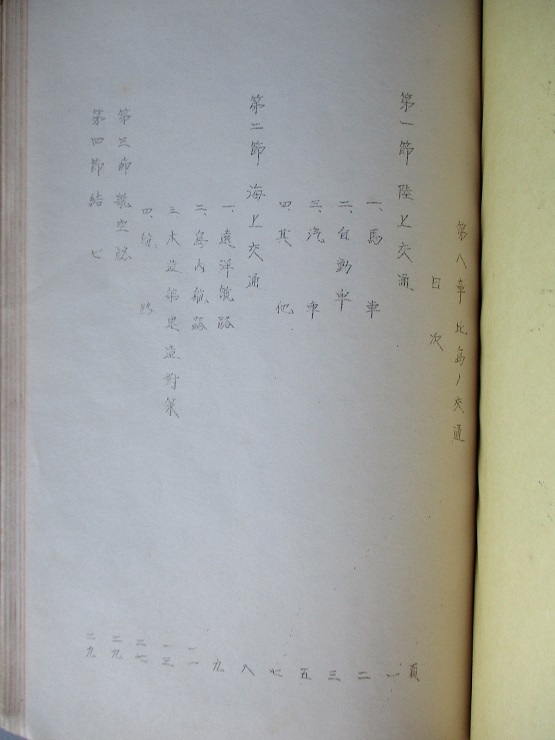 第八章 比島ノ交通
目次
頁
第一節 陸上交通 一
一、馬車 二
二、自動車 三
三、汽車 五
四、其他 七
第二節 海上交通 八
一、遠洋航路 九
二、島内航路 一一
三、木造船 造対策 一三
四、 路 二七
第三節 航空路 二九
第四節 結 二九